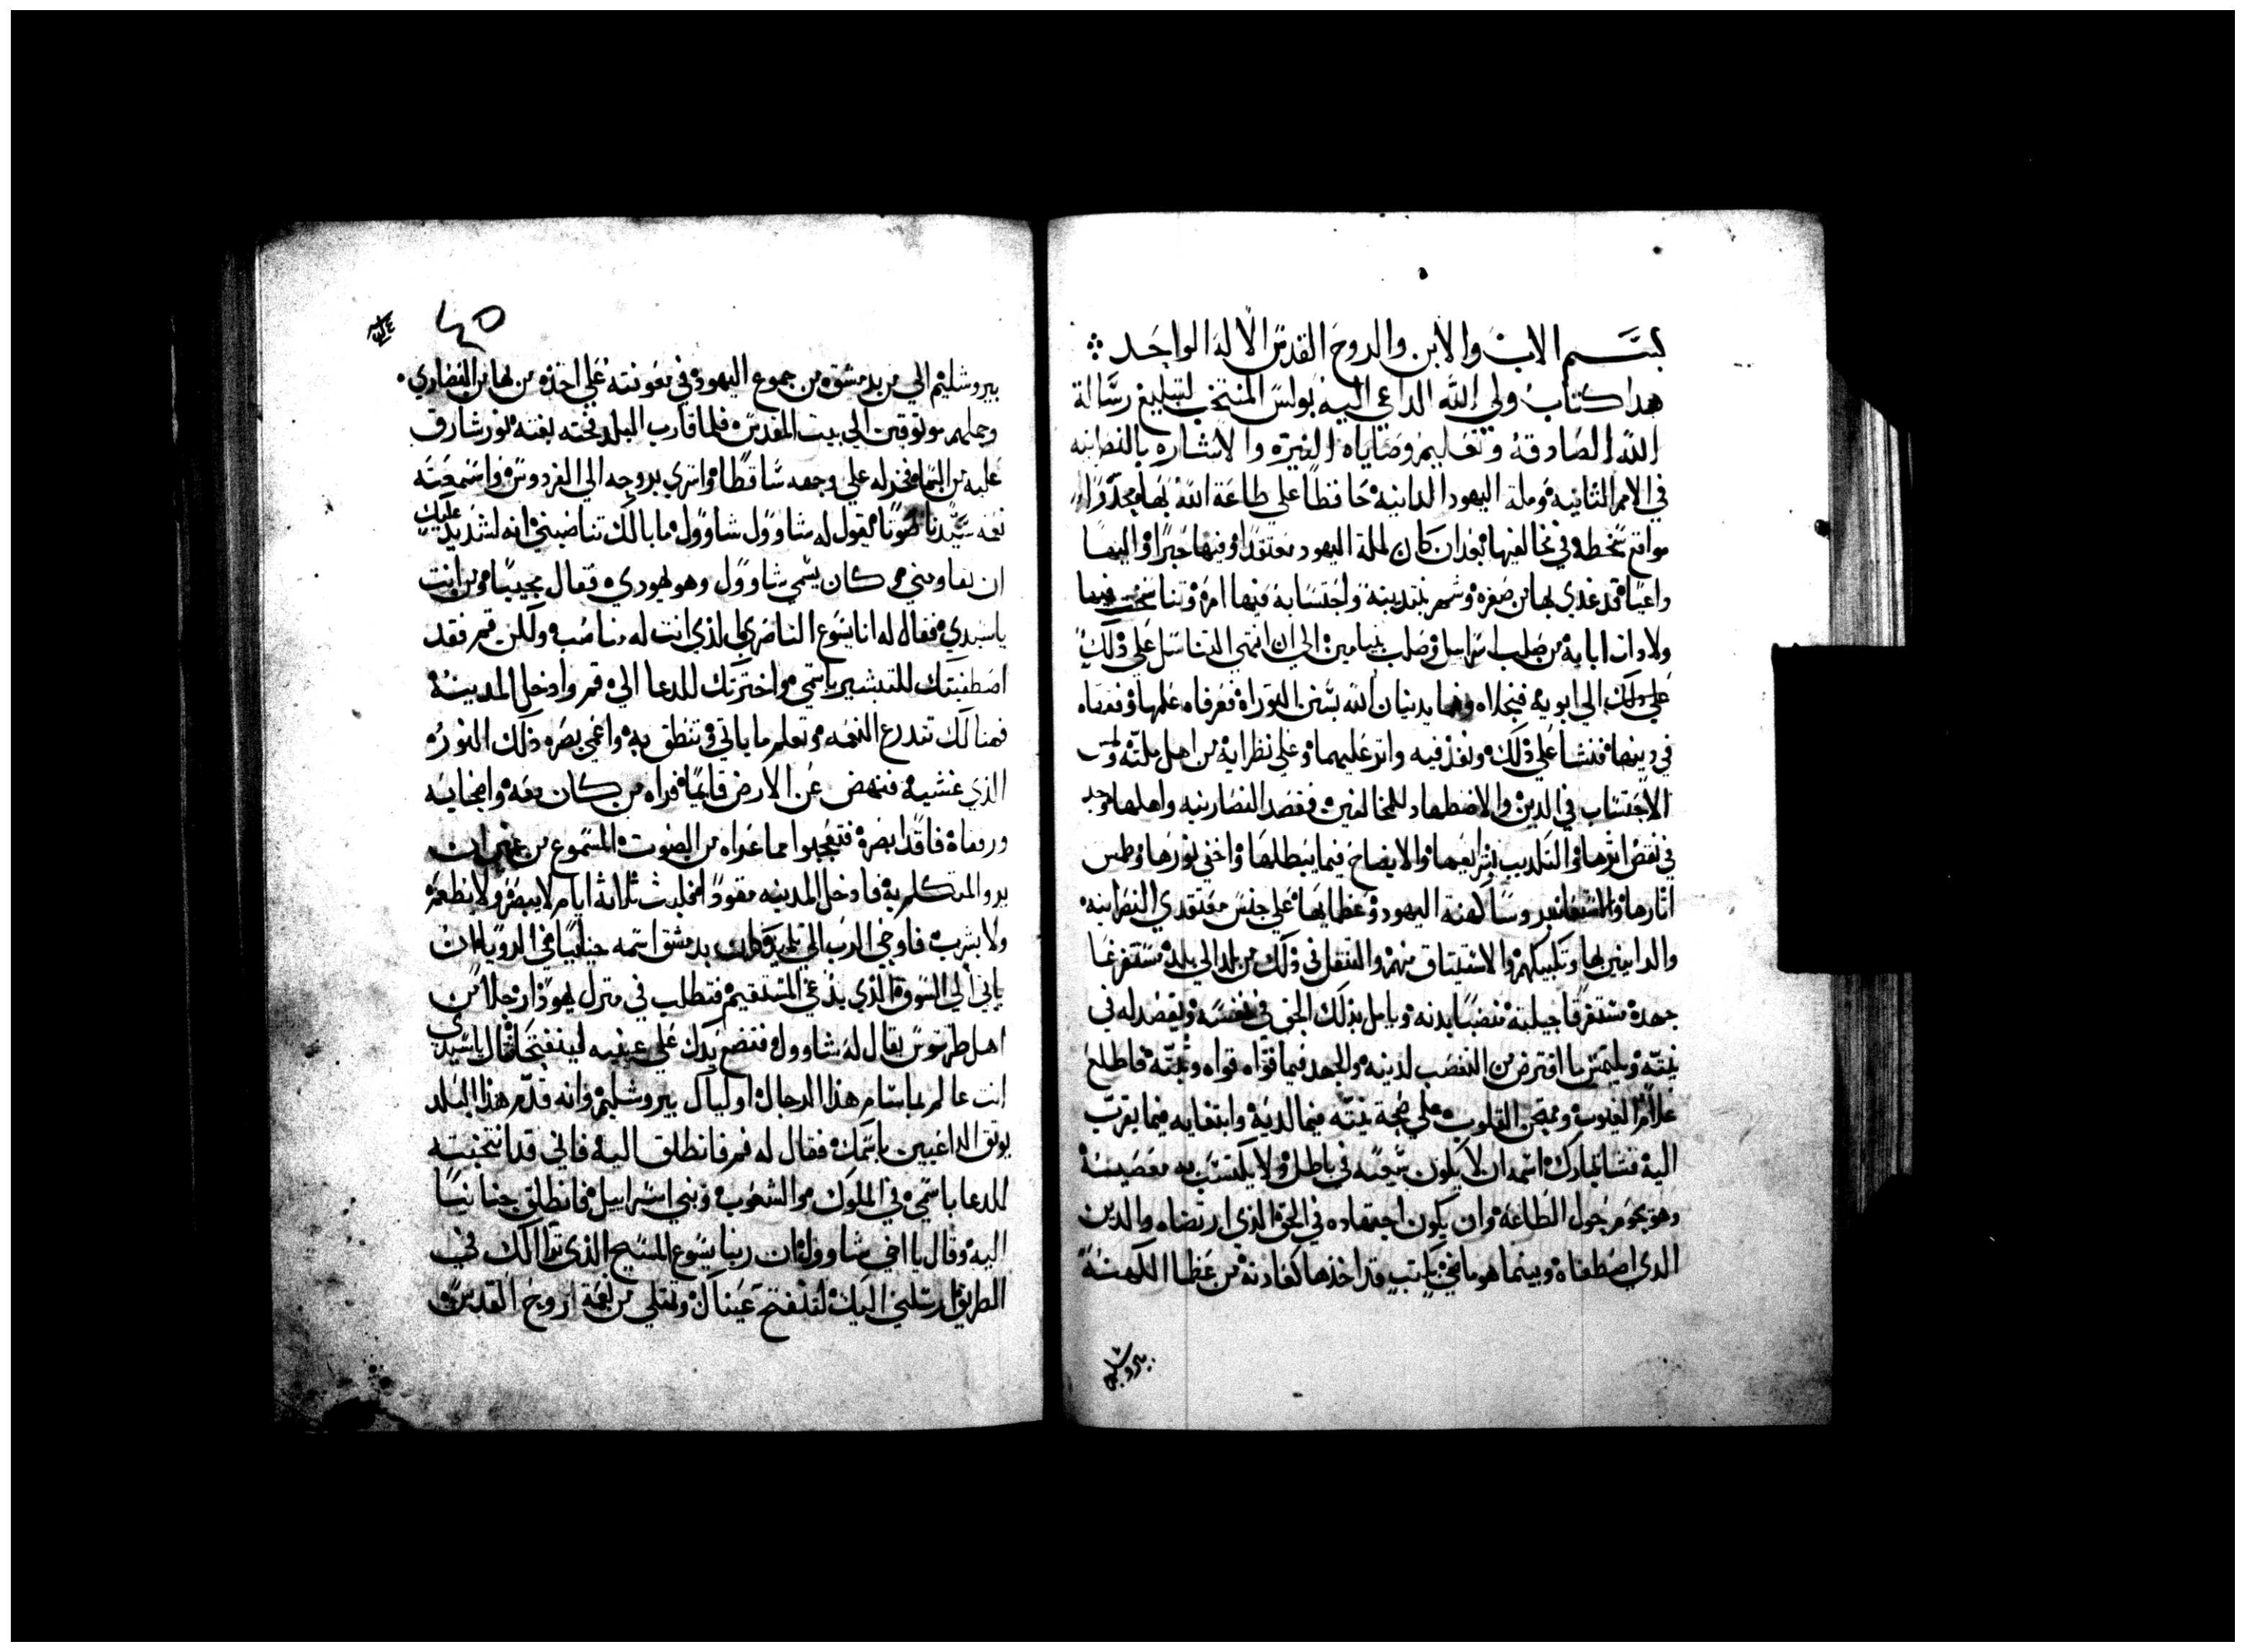 بسم الاب والابن والروح القدس الاله الواحد
هدا كتاب ولي الله الداعي اليه بولس المنتخب لتبليغ رسالة
الله الصادقة وتعليم وصاياه النيره والاشاره بالنصرانيه
في الامم الثانيه وملة اليهود الداينه حافظا علي طاعة الله بها محذرا
مواقع سخطه في مخالفيها بعد ان كان لملة اليهود معتقدا وفيها حبرا واليها
واعيا قد غدي بها من صغره وشهر بتدينه واحتسابه فيها امره
ولاوان ابايه من صلب اسراسل وصلب بنيامين الي ان انتهي التناسل علي ذلك
علي ذلك الي ابويه فنجلاه وهما يدنيان لله بسنن التوراه فعرفاه علمها وفقهاه
في دينها فنشا علي ذلك ونفذ فيه وابر عليهما وعلي نظرايه من اهل ملته
الاحتساب في الدين والاضطهاد للمخالفين فقصد النصارنيه واهلها
في نقض اثرها والتكذيب بشرايعها والايضاح فيما يبطلها واخفي نورها وطمس
اثارها روسا كهنة اليهود وعظمايها علي حبس معتقدي النصرانيه
والداينين بها وتكبيلهم والاستيتاق منهم والتنقل في ذلك من بلد الي بلد مستفرغا
جهده مستغرقا حيلته منصبا بدنه ويامل بذلك الحق في نفسه ويقصد له في
نيته ويلتمس ما افترض من التعصب لدينه والجهد فيما قواه قواه ونيته فاطلع
علام الغيوب وممتحن القلوب علي صحة نيته فيما لديه وابتغايه فيما يقرب
اليه فشا تبارك اسمه ان لا يكون سعيه في باطل ولا يكتسب به معصيه
وهو يحوم حول الطاعه وان يكون اجتهاده في الحق الذي ارتضاه والدين
الدي اصطفاه وبينما هو ماضي بكتب قد اخذها كعادته من عظما الكهنه
بيروشليم
بيروشليم الي من بدمشق من جموع اليهود في معونته علي اخذه من بها من النصاري
وحملهم موتوقين الي بيت المقدس فلما قارب البلد فجته بغته نور شارق
عليه من السما فخر له علي وجهه ساقطا واسري بروحه الي الفردوس واسمعته
نعمه سيدنا صوتا يقول له شاوول شاوول ما بالك تناصبني انه لشديد عليك
ان تعاونني وكان يسمي شاوول وهو ليهودي فقال مجيبا ومن انت
ياسيدي فقال له انا يسوع الناصري الذي انت له مناصب ولكن قم فقد
اصطفيتك للتبشير باسمي واخترتك للدعا الي قم وادخل المدينه
فهنالك تتدرع النعمه وتعلم ما ياتي وتنطق به واغمي بصره ذلك النور
الذي غشيه فنهض عن الارض قايما فراه من كان معه واصحابه
ورفقاه فاقدا بصره فتعجبوا مما عراه من الصوت المسموع من غير ان
يرو المتكلم به فادخل المدينه مقودا فلبث ثلاثة ايام لا يبصر ولا يطعم
ولا يشرب فاوحي الرب الي تلميذ كان بدمشق اسمه حنانيا في الرويا ان
ياتي الي السوق الذي يدعي المستقيم فتطلب في منزل يهوذا رجلا من
اهل طرسوس يقال له شاوول فتضع يدك علي عينيه لينفتحا فقال ياسيدي
انت عالم بما سام هذا الرجال اوليال بيروشليم وانه قدم هذا البلد
يوتق الداعيين باسمك فقال له قم فانطلق اليه فاني قد انتخبته
للدعا باسمي في الملوك والشعوب وبني اسراسل فانطلق حنانيا
اليه وقال يا اخي شاوول ان ربنا يسوع المسيح الذي ترا الك في
الطريق ارسلني اليك لتنفتح عيناك وتمتلي من نعمة الروح القدس